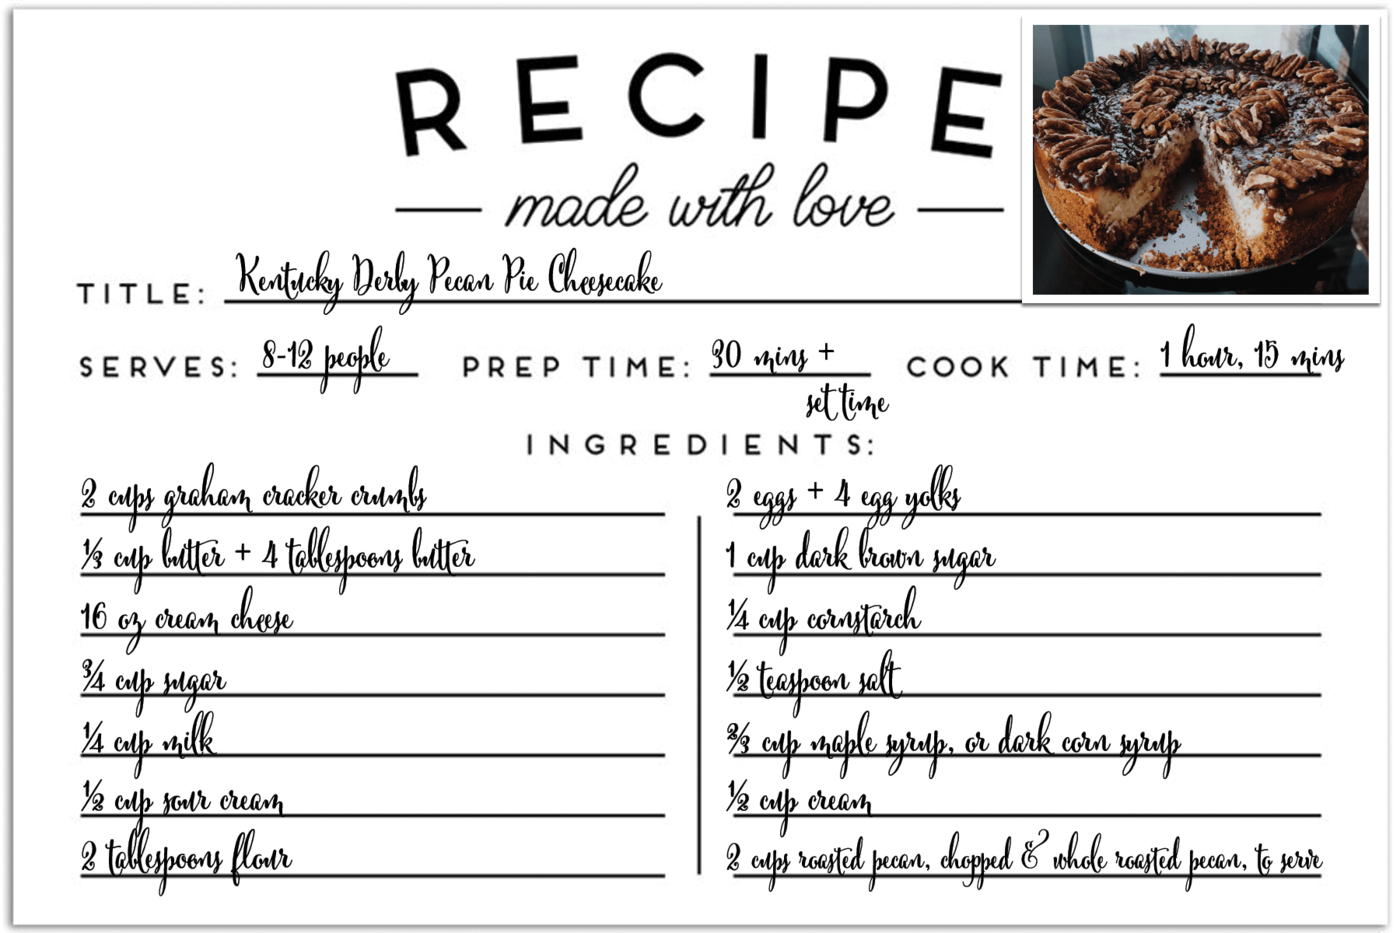 RECIPE
made with love
TITLE: Kentucky Derby Pecan Pie Cheesecake
SERVES: 8-12 people PREP TIME: 30 mins + set time COOK TIME: 1 hour, 15 mins
INGREDIENTS:
2 cups graham cracker crumbs
⅓ cup butter + 4 tablespoons butter
16 oz cream cheese
¾ cup sugar
¼ cup milk
½ cup sour cream
2 tablespoons flour
2 eggs + 4 egg yolks
1 cup dark brown sugar
¼ cup cornstarch
½ teaspoon salt
⅔ cup maple syrup, or dark corn syrup
½ cup cream
2 cups roasted pecan, chopped & whole roasted pecan, to serve